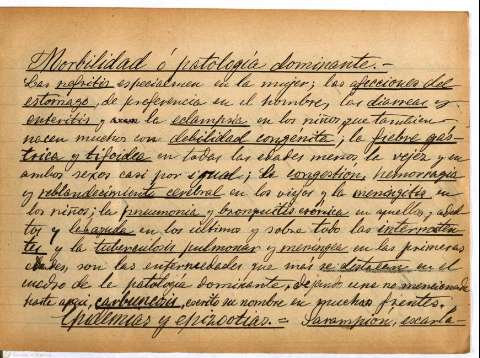 Morbilidad ó patología dominante.-
Las nefritis especialmen en la mujer; las afecciones del
estómago, de preferencia en el hombre, las diarreas y
enteritis y la eclampsia en los niños que tambien
nacen muchos con debilidad congénita; la fiebre gás-
trica y tifoidea en todas las edades menos la vejez y en
ambos sexos casi por igual; la congestion, hemorragia
y reblandecimiento cerebral en los viejos y la meningitis en
los niños; la pneumonia y bronquitis crónica en aquellos, adul
tos y en los ultimos y sobre todo las intermiten
tes y la tuberculosis pulmonar y meningea en las primeras
edades, son las enfermedades que mas se destacan en el
cuadro de la patologia dominante, dejando una no mencionada
hasta aqui, carbuncosis, escrito su nombre en muchas frentes.
Epidemias y epizootias.= Sarampión, escarla-